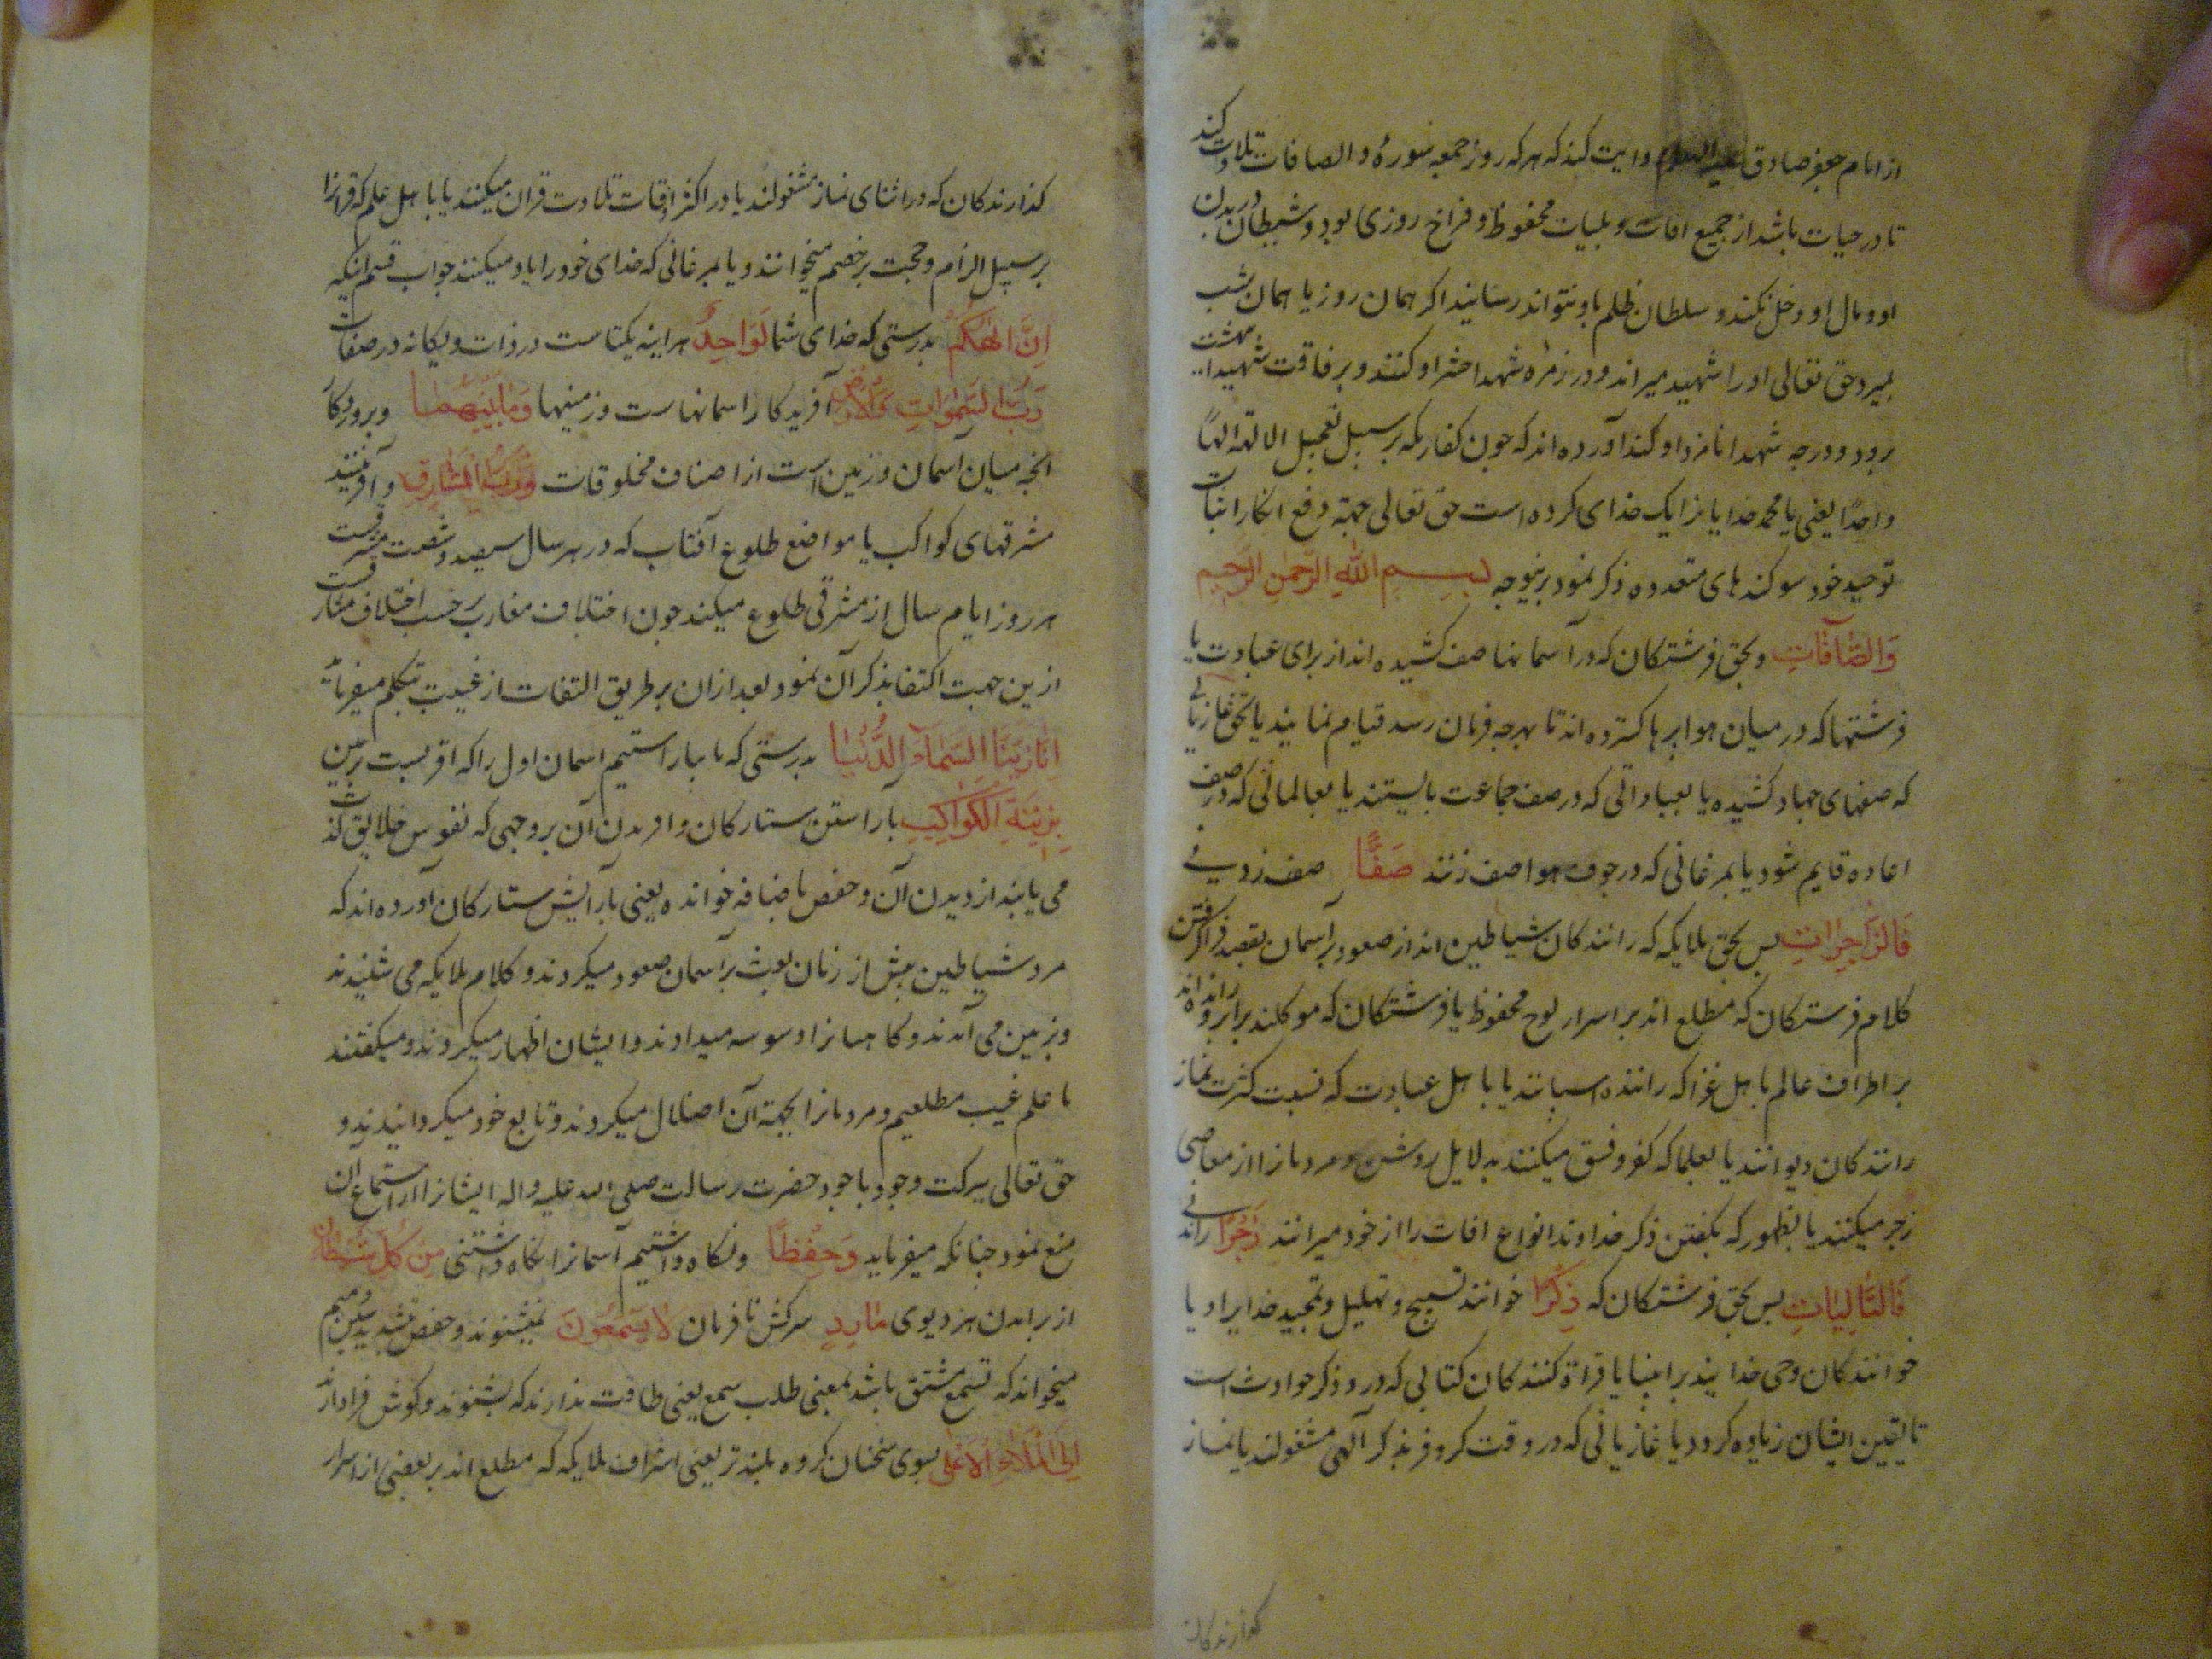 از امام جعفر صادق علیه السلام روایت کند که هر که روز جمعه سورهٔ والصافات تلاوت کند
تا در حیات باشد از جمیع افات و بلیات محفوظ و فراخ روزی بود و شیطان در بدن
او و مال او دخل نکند و سلطان ظلم باو نتواند رسانید اکر همان روز یا همان شب
بمیرد حق تعالی او را شهید میراند و در زمرهٔ شهدا حشر او کنند و برفاقت شهیدا بهشت
برود و درجه شهدا نامزد او کنند آورده اند که چون کفار مکه بر سبیل تعجیل الالهة الها
واحدًا یعنی یا محمد خدایانرا یک خدای کرده است حق تعالی جهة دفع انکار اثبات
توحید خود سوکندهای متعدده ذکر نمود برینوجه بسم الله الرحمن الرحیم
وَالصَّافَّاتِ و بحق فرشتکان که در آسمانها صف کشیده اند از برای عبادت یا
فرشتها که در میان هوا پرها کسترده اند تا بهرچه فرمان رسد قیام نمایند یا بحق غازیانی
که صفهای جهاد کشیده یا بعباداتی که در صف جماعت بایستند یا بعالمانی که در صف
افاده قایم شود یا بمرغانی که در جوف هوا صف زنند صَفًّا صف زدنی
فَالزَّاجِرَاتِ بس بحق ملایکه که رانندکان شیاطین اند از صعود بر آسمان بقصد فراکرفتن
کلام فرشتکان که مطلع اند بر اسرار لوح محفوظ یا فرشتکان که موکلند بر ابر و راننده اند
بر اطراف عالم یا باهل غزا که راننده اسبانند یا باهل عبادت که نسبت کثرت نماز
رانندکان دیوانند یا بعلما که کفر و فسق میکنند بدلایل روشن و مردمانرا از معاصی
زجر میکنند یا بطیور که بکفتن ذکر خداوند انواع افات را از خود میرانند زَجْرًا راندنی
فَالتَّالِیَاتِ بس بحق فرشتکان که ذِکْرًا خوانند تسبیح و تهلیل و تمجید خدایرا و یا
خوانندکان وحی خدایند بر انبیا یا قراة کنندکان کتابی که در و ذکر حوادث است
تا یقین ایشان زیاده کردد یا غازیانی که در وقت کر و فر بذکر آلهی مشغولند یا نماز
کذارندکان
کذارندکان که در اثنای نماز مشغولند یا در اکثر اوقات تلاوت قران میکنند یا باهل علم که قرانرا
بر سبیل الزام و حجت بر خصم میخوانند و یا بمرغانی که خدای خود را یاد میکنند جواب قسم انکه
اِنَّ اِلٰهَکُمْ بدرستی که خدای شما لَوَاحِدٌ هر اینه یکتاست در ذات و یکانه در صفات
رَبُّ السَّمٰوَاتِ وَالْاَرْضِ آفریدکار اسمانهاست و زمینها وَمَا بَیْنَهُمَا و بروردکار
انچه میان آسمان و زمین است از اصناف مخلوقات وَرَبُّ الْمَشَارِقِ و آفریننده
مشرقهای کواکب یا مواضع طلوع آفتاب که در هر سال سیصد و شصت مشرقست
هر روز ایام سال از مشرقی طلوع میکند چون اختلاف مغارب بر حسب اختلاف مشارقست
ازین جهت اکتفا بذکر آن نمود بعد ازان بر طریق التفات از غیبت بتکلم میفرماید
اِنَّا زَیَّنَّا السَّمَآءَ الدُّنْیَا بدرستی که ما بیاراستیم اسمان اول را که اقربست بزمین
بِزِینَةٍ الْکَوَاکِبِ بآراستن ستارکان و افریدن آن بر وجهی که نفوس خلایق لذت
می یابند از دیدن آن و حفص باضافه خوانده یعنی بآرایش ستارکان آورده اند که
مرد شیاطین بیش از زمان بعث بر آسمان صعود میکردند و کلام ملایکه می شنیدند
و بزمین می آمدند و کاهنانرا وسوسه میدادند و ایشان اظهار میکردند و میکفتند
ما علم غیب مطلعیم و مردمانرا بجهة آن اضلال میکردند و تابع خود میکردانیدند و
حق تعالی ببرکت وجود باجود حضرت رسالت صلی الله علیه واله ایشانرا از استماع آن
منع نمود چنانکه میفرماید وَحِفْظًا و نکاه داشتیم آسمانرا نکاه داشتنی مِنْ کُلِّ شَیْطَانٍ
از برآمدن هر دیوی مَارِدٍ سرکش نافرمان لَا یَسَّمَّعُونَ نمیشنوند و حفص بتشدید سین و میم
میخواند که تسمع مشتق باشد بمعنی طلب سمع یعنی طاقت ندارند که بشنوند و کوش فرا دارند
اِلَی الْمَلَاِ الْاَعْلٰی بسوی سخنان کروه بلندتر یعنی اشراف ملایکه که مطلع اند بر بعضی از اسرار